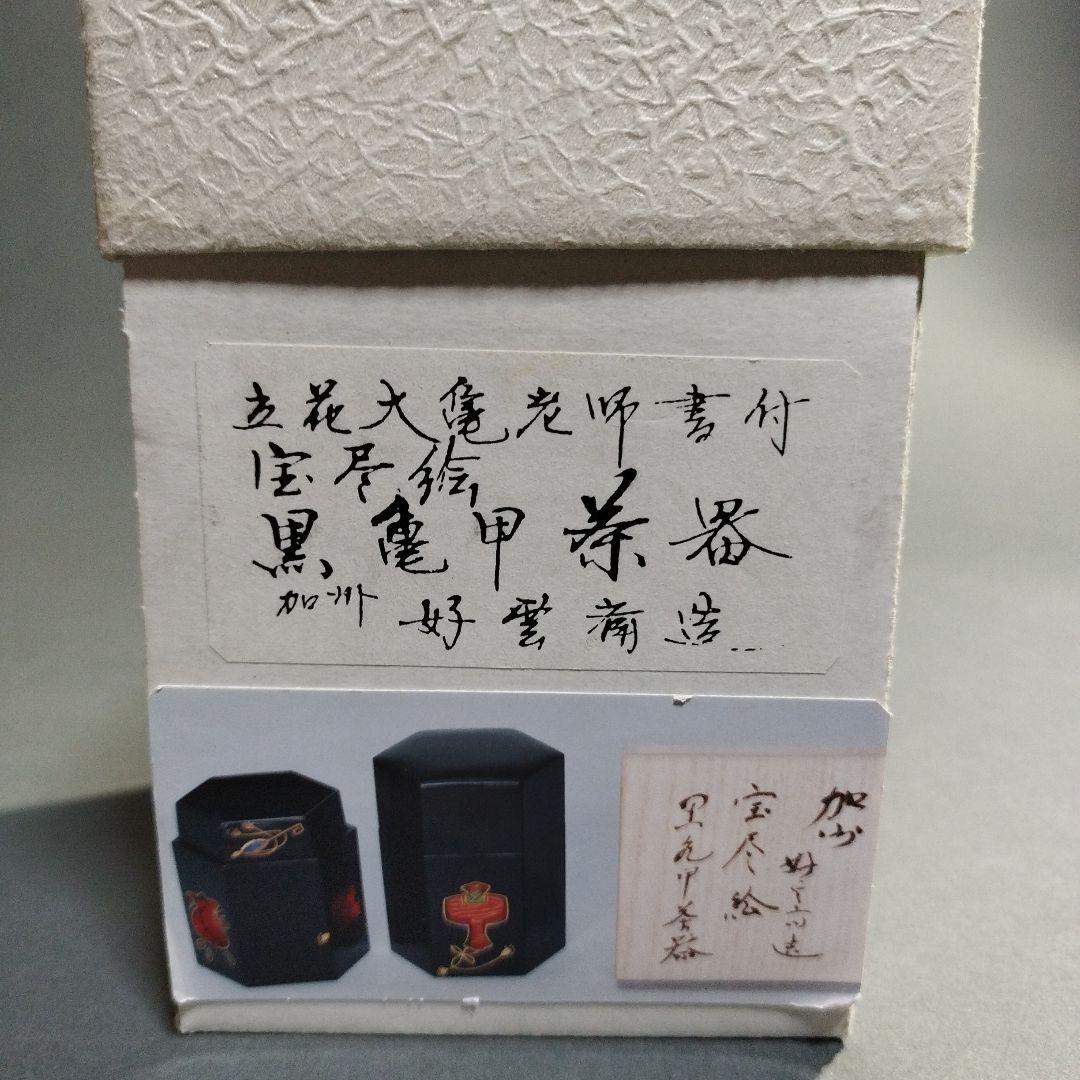 立花大亀老师書付
宝尽絵
黒亀甲茶器
加州 好雲斎造
加州 好雲斎造
宝尽絵
黒亀甲茶器